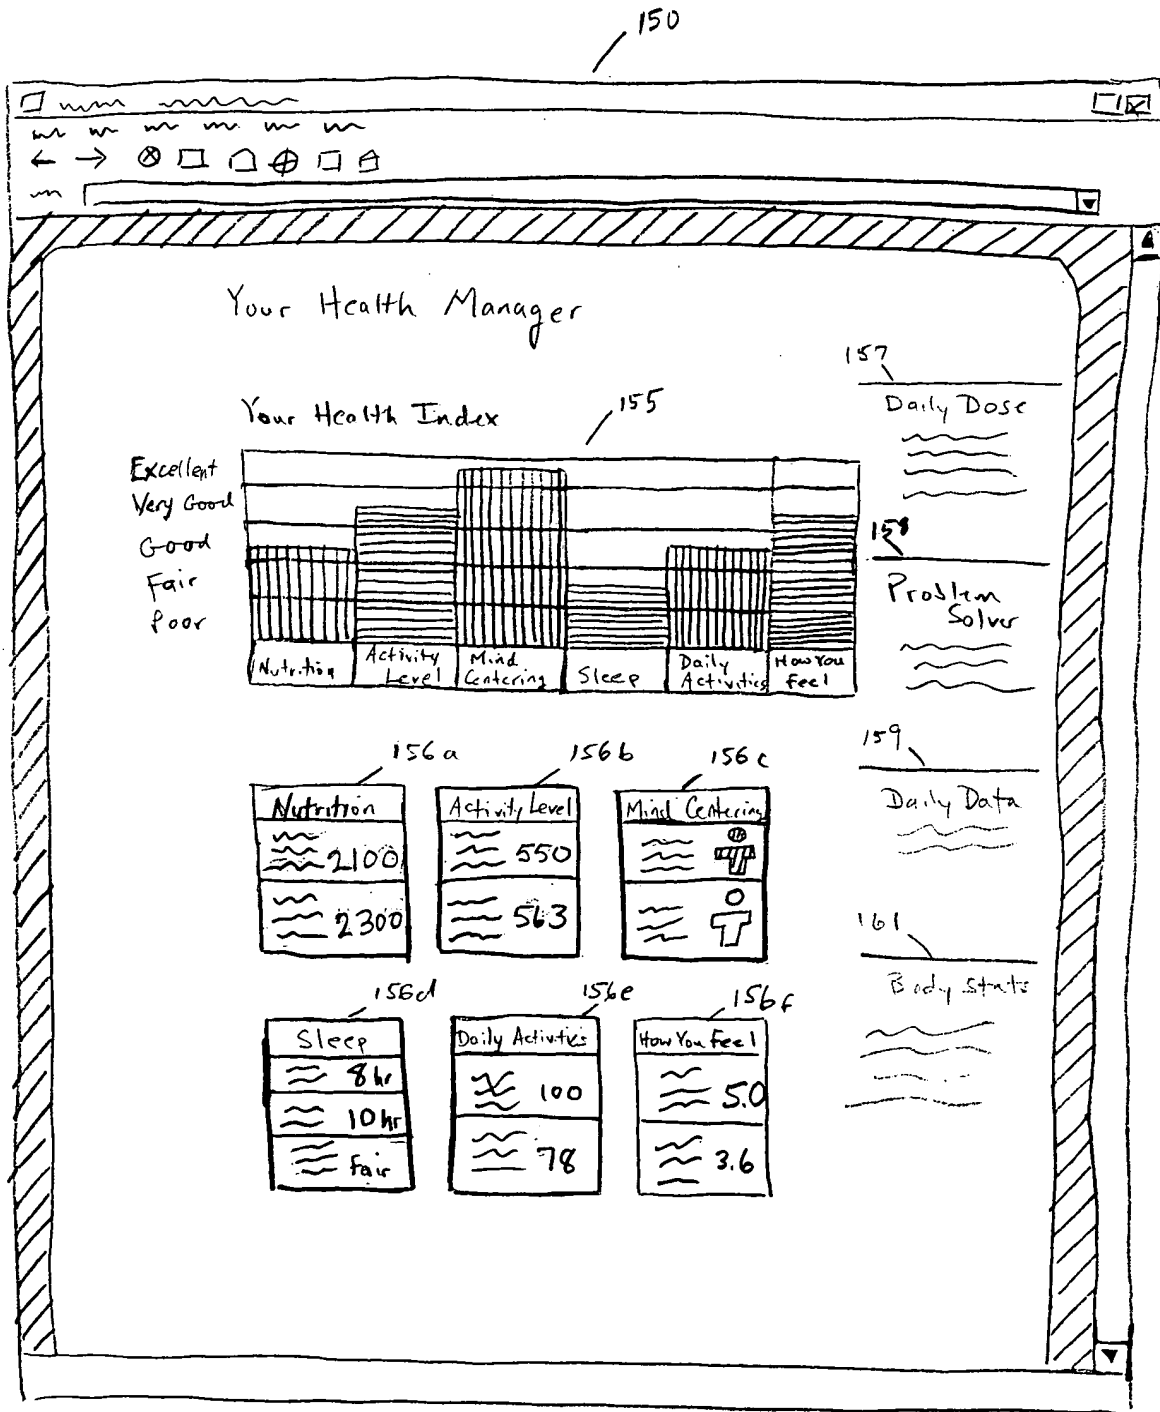 150
Your Health Manager
157
Daily Dose
Your Health Index
155
Excellent
Very Good
Good
Fair
Poor
Nutrition
Activity Level
Mind Centering
Sleep
Daily Activities
How You Feel
158
Problem
Solver
156a
156b
156c
159
Daily Data
Nutrition
2100
2300
Activity Level
550
563
Mind Centering
161
Body Stats
156d
156e
156f
Sleep
8 hr
10 hr
Fair
Daily Activities
100
78
How You Feel
5.0
3.6